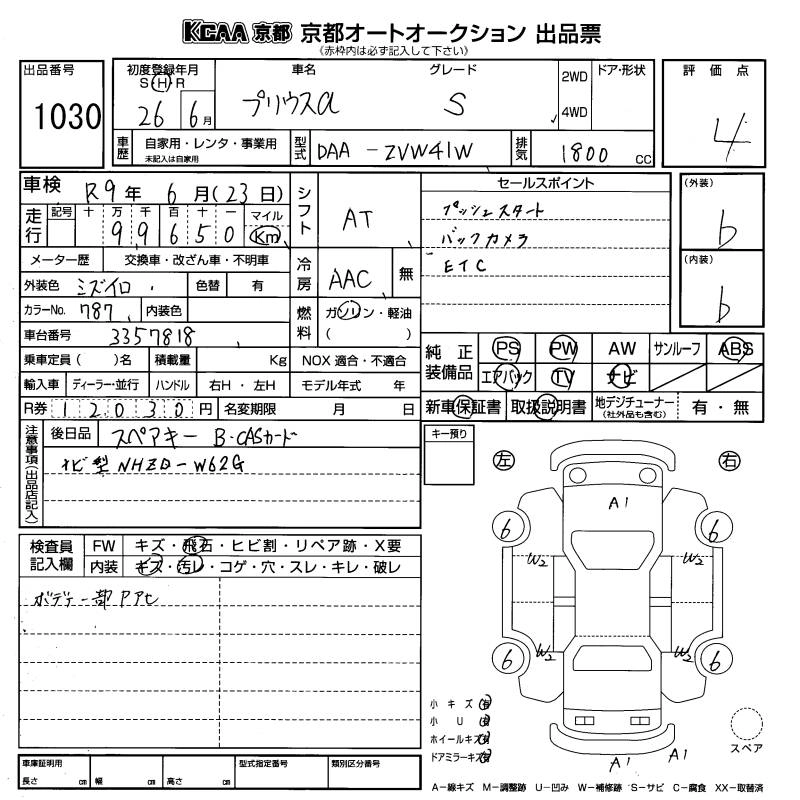 KCAA 京都 京都オートオークション 出品票
(赤枠内は必ず記入して下さい)
出品番号
1030
初度登録年月
S H R
26 6月
車名
プリウスα
グレード
S
2WD
4WD
ドア・形状
評価点
4
車歴
自家用・レンタ・事業用
未記入は自家用
型式
DAA-ZVW41W
排気
1800 CC
車検 R9年 6月(23日)
走行
記号 十 万 千 百 十 一 マイル
9 9 6 5 0 Km
メーター歴 交換車・改ざん車・不明車
外装色 ミズイロ
色替 有
カラーNo. 787
内装色
車台番号 3357818
乗車定員( )名 積載量 Kg NOX 適合・不適合
輸入車 ディーラー・並行 ハンドル 右H・左H モデル年式 年
R券 12030円 名変期限 月 日
シフト
AT
冷房
AAC
無
燃料
ガソリン・軽油
( )
セールスポイント
プッシュスタート
バックカメラ
ETC
(外装)
b
(内装)
b
純正装備品
PS PW AW サンルーフ ABS
エアバック TV ナビ
新車保証書 取扱説明書 地デジチューナー(社外品も含む) 有・無
注意事項(出品店記入)
後日品 スペアキー B-CASカード
ナビ型NHZD-W62G
キー預り
検査員記入欄
FW キズ・飛石・ヒビ割・リペア跡・X要
内装 キズ・汚レ・コゲ・穴・スレ・キレ・破レ
ボデー一部アアセ
左
右
A1
6
6
W2
W2
W2
W2
6
6
A1
A1
小キズ 有
小U 有
ホイールキズ 有
ドアミラーキズ 有
スペア
車庫証明用
長さ cm 幅 cm 高さ cm
型式指定番号
類別区分番号
A-線キズ M-調整跡 U-凹み W-補修跡 S-サビ C-腐食 XX-取替済